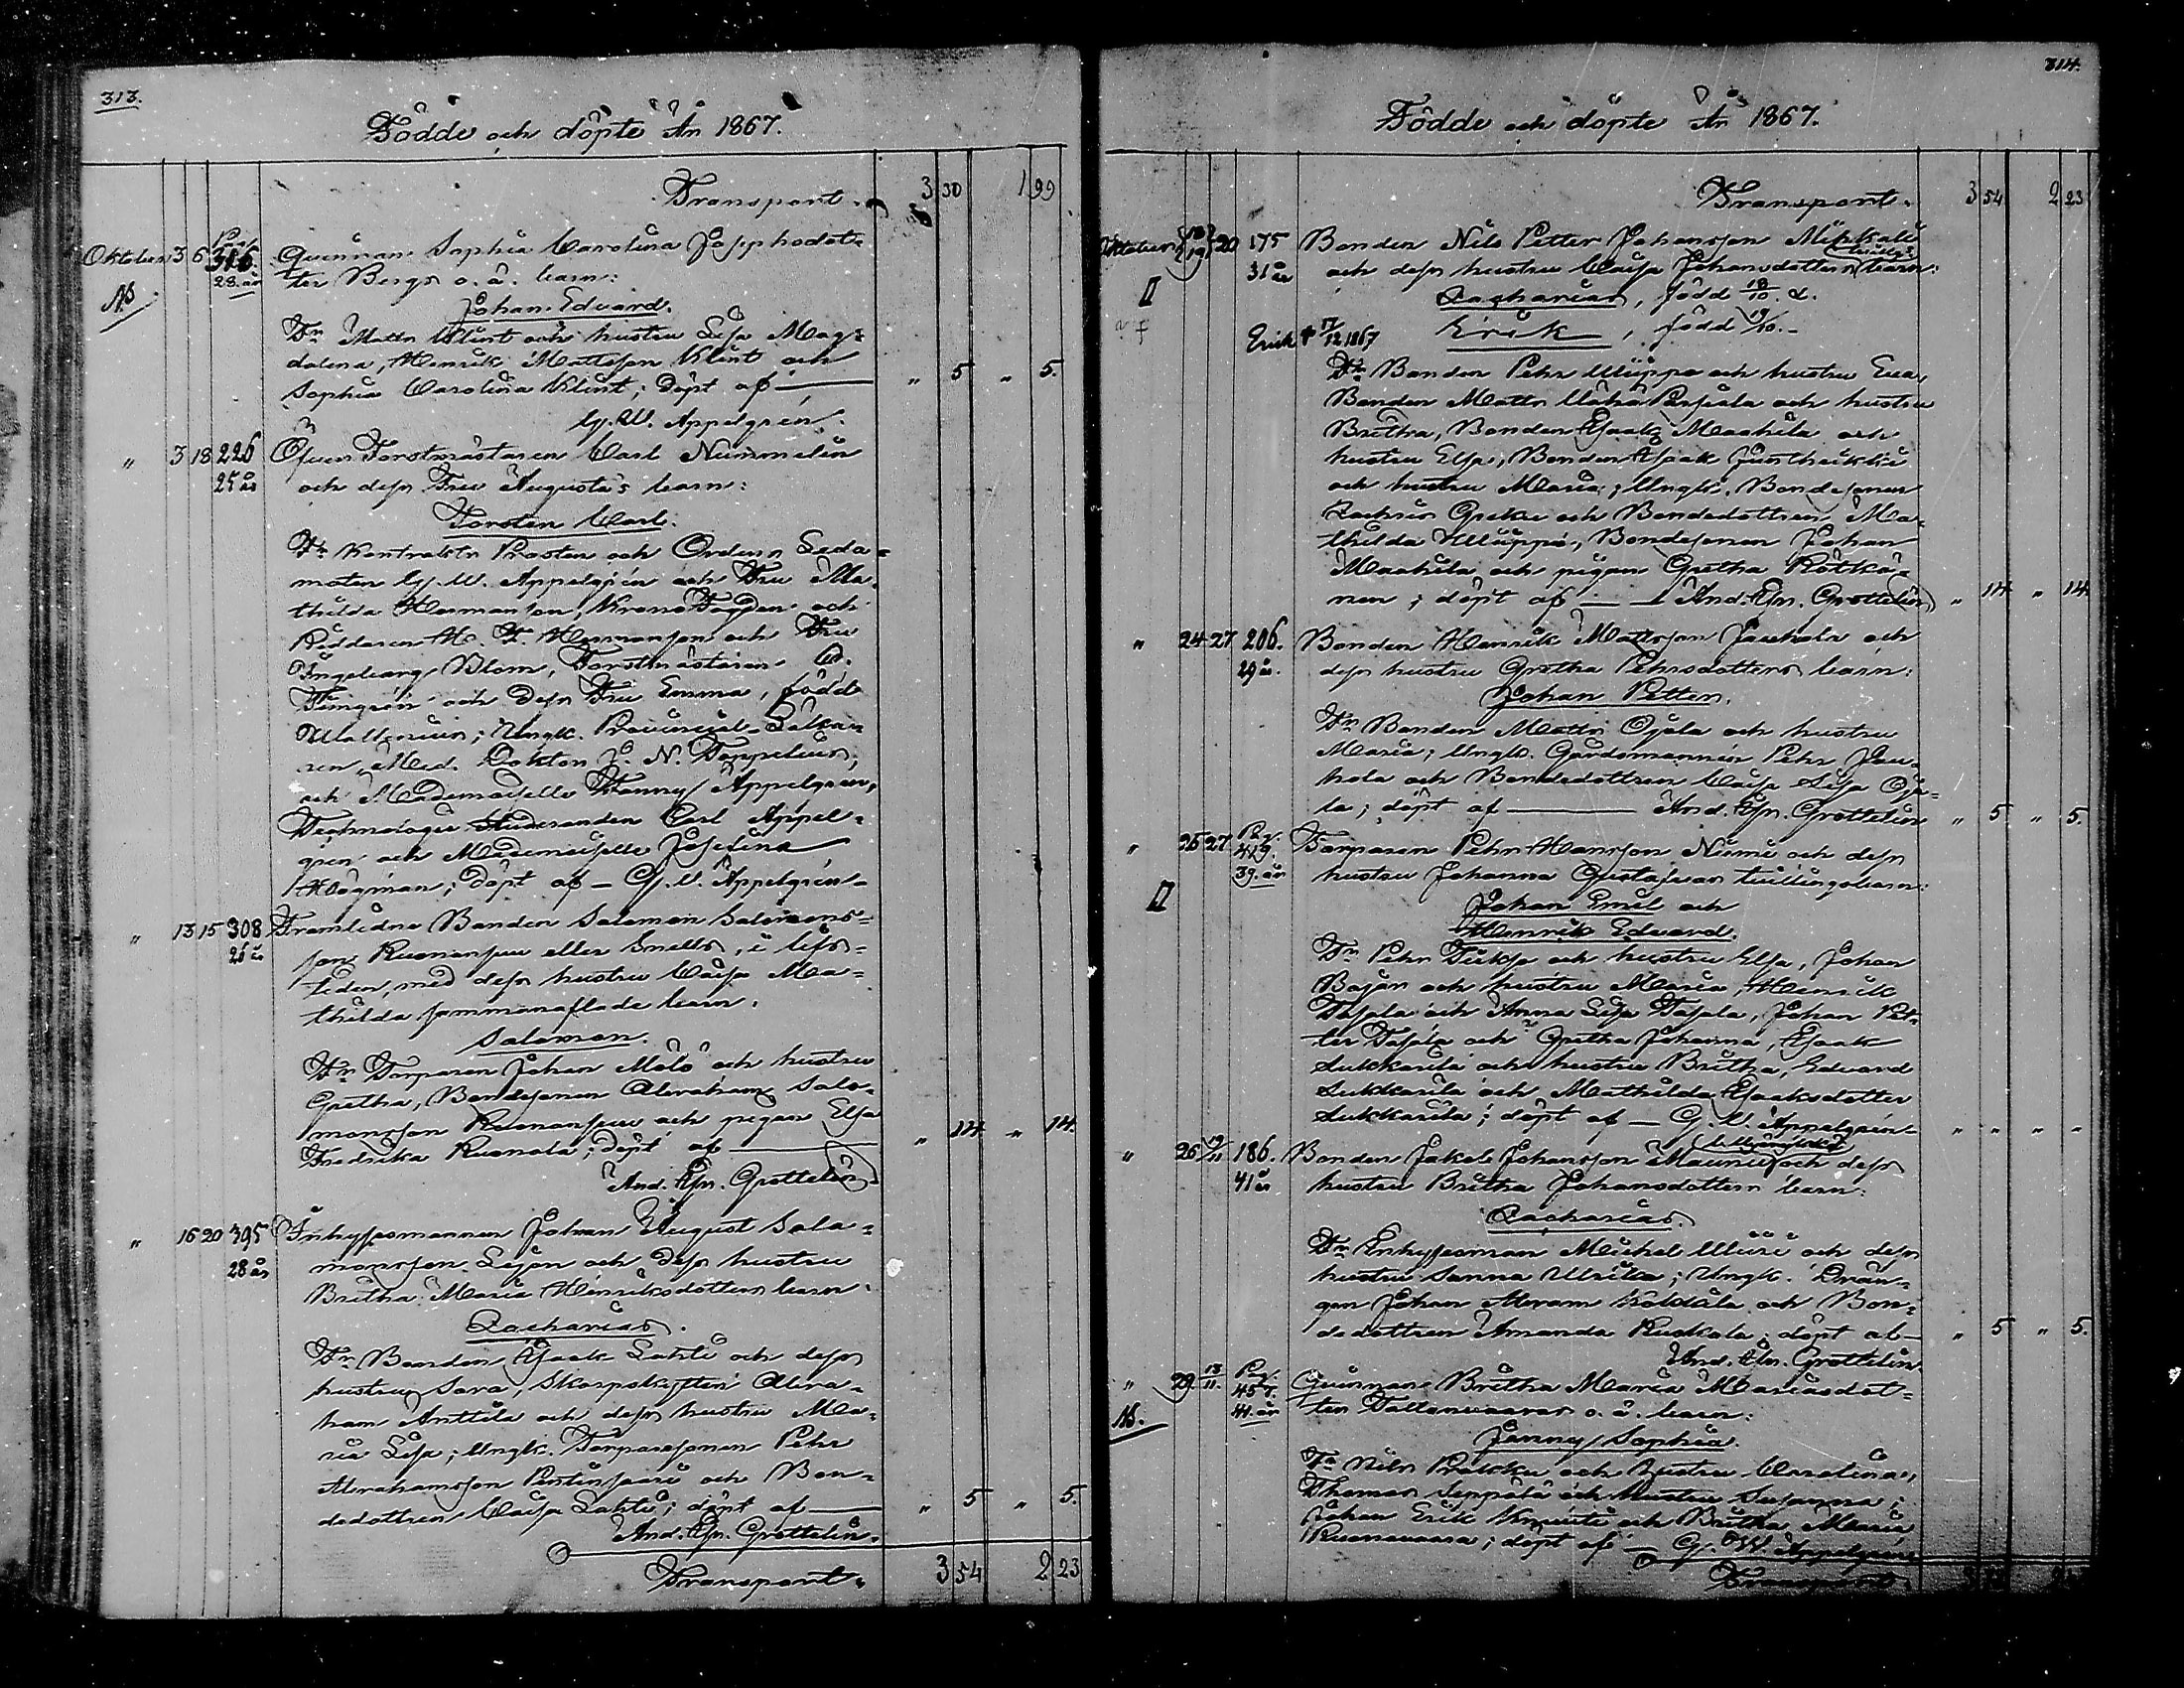 313.
Födde och döpte År 1867.
Transport. 3 30 1 99
Oktober 3 6 316 28 år Qvinnan Sophia Carolina Josephsdot-
ter Bergs o. ä. barn:
Johan Edvard.
Fr Matts Klint och hustru Lisa Mag-
dalena, Henrik Mattsson Klint och
Sophia Carolina Klint; döpt af — " 5 " 5.
Appelgrén.
" 3 18 226 25 år Öfver Forstmästaren Carl Nummelin
och dess Fru Augusta's barn:
Torsten Carl.
Fr Kontrakts Prosten och Ordens Leda-
moten G. W. Appelgrén och Fru Ma-
thilda Hermanson, Krono Fogden och
Riddaren H. F. Hermanson och Fru
Ingeborg Blom, Forstmästaren
och dess Fru Emma, född
; Ungk. Provincial-Läka-
ren, Med. Doktor J. N. Toppelius,
och Mademoiselle Fanny Appelgren,
Technologie Studeranden Carl Appel-
gren och Mademoiselle Josefina
Hägman; döpt af — G. W. Appelgrén
" 13 15 308 26 år Framlidne Bonden Salomon Salomons-
son Ruonansuu eller Snells, i lifs-
tiden, med dess hustru Caisa Ma-
thilda sammanaflade barn:
Salomon.
Fr Torparen Johan Mölö och hustru
Gretha, Bondesonen Abraham Salo-
monsson Ruonansuu och pigan Elsa
Fredrika Ruonala; döpt af — " 14 " 14.
And. Efr. Grottelin
" 16 20 395 28 år Inhysesmannen Johan August Salo-
monsson Lejon och dess hustru
Britha Maria Henriksdotters barn:
Zacharias.
Fr Bonden Isaak Lahti och dess
hustru Sara, Skarpskytten Abra-
ham Anttila och dess hustru Ma-
ria Lisa; Ungk. Torparesonen Pehr
Abrahamsson Pentinsaari och Bon-
dedottren Caisa Lahti; döpt af — " 5 " 5.
And. Efr. Grottelin.
Transport. 3 54 2 23
314.
Födde och döpte År 1867.
Transport. 3 54 2 23
Oktober 18 19 20 175 31 år Bonden Nils Petter Johansson
och dess hustru Caisa Johansdotters barn:
II Zacharias, född 18/10.
Erick † 17/12 1867 Erik, född 19/10.
Fr Bonden Pehr och hustru Eva,
Bonden Matts och hustru
Britha, Bonden Isaak Maahila och
hustru Elsa, Bonden Isaak
och hustru Maria; Ungk. Bondesonen
Zachris och Bondedottren Ma-
thilda, Bondesonen Johan
Maahila och pigan Gretha Rötkö-
nen; döpt af — And. Efr. Grottelin " 14 " 14.
" 24 27 206. 29 år. Bonden Henrik Mattsson Jauhola och
dess hustru Gretha Pehrsdotters barn:
Johan Petter.
Fr Bonden Matts Ojala och hustru
Maria; Ungk. Gårdsmannen Pehr Jau-
hola och Bondedottren Caisa Lisa Oja-
la; döpt af — And. Efr. Grottelin " 5 " 5.
" 26 27 419. 39. år Torparen Pehr Hansson Niemi och dess
hustru Johanna Gustafvas tvillingbarn:
II Johan Emil och
Henrik Edvard.
Fr Pehr och hustru Elsa, Johan
Bajar och hustru Maria, Henrik
Tapala och Anna Lisa Tapala, Johan Pet-
ter Tapala och Gretha Johanna, Isaak
Sukkarila och hustru Britha, Edvard
Sukkarila och Mathilda Isaksdotter
Sukkarila; döpt af — G. W. Appelgrén " " " "
" 26 186. 41 år Bonden Jakob Johansson Maunu och dess
hustru Britha Johansdotters barn:
Zacharias.
Fr Inhysesman Michel och dess
hustru Sanna Ulrika; Ungk. Drän-
gen Johan Abram och Bon-
dedottren Amanda Ruokola; döpt af — " 5 " 5.
And. Efr. Grottelin
" 29 13/11. 457. 44. år Qvinnan Britha Maria Mariasdot-
ter Tattanvaaras o. ä. barn:
Jenny Sophia.
Fr Nils och hustru Carolina,
Thomas Seppälä och hustru Susanna;
Johan Erik och Britha Maria
Ruonavaara; döpt af — G. W. Appelgrén
Transport.